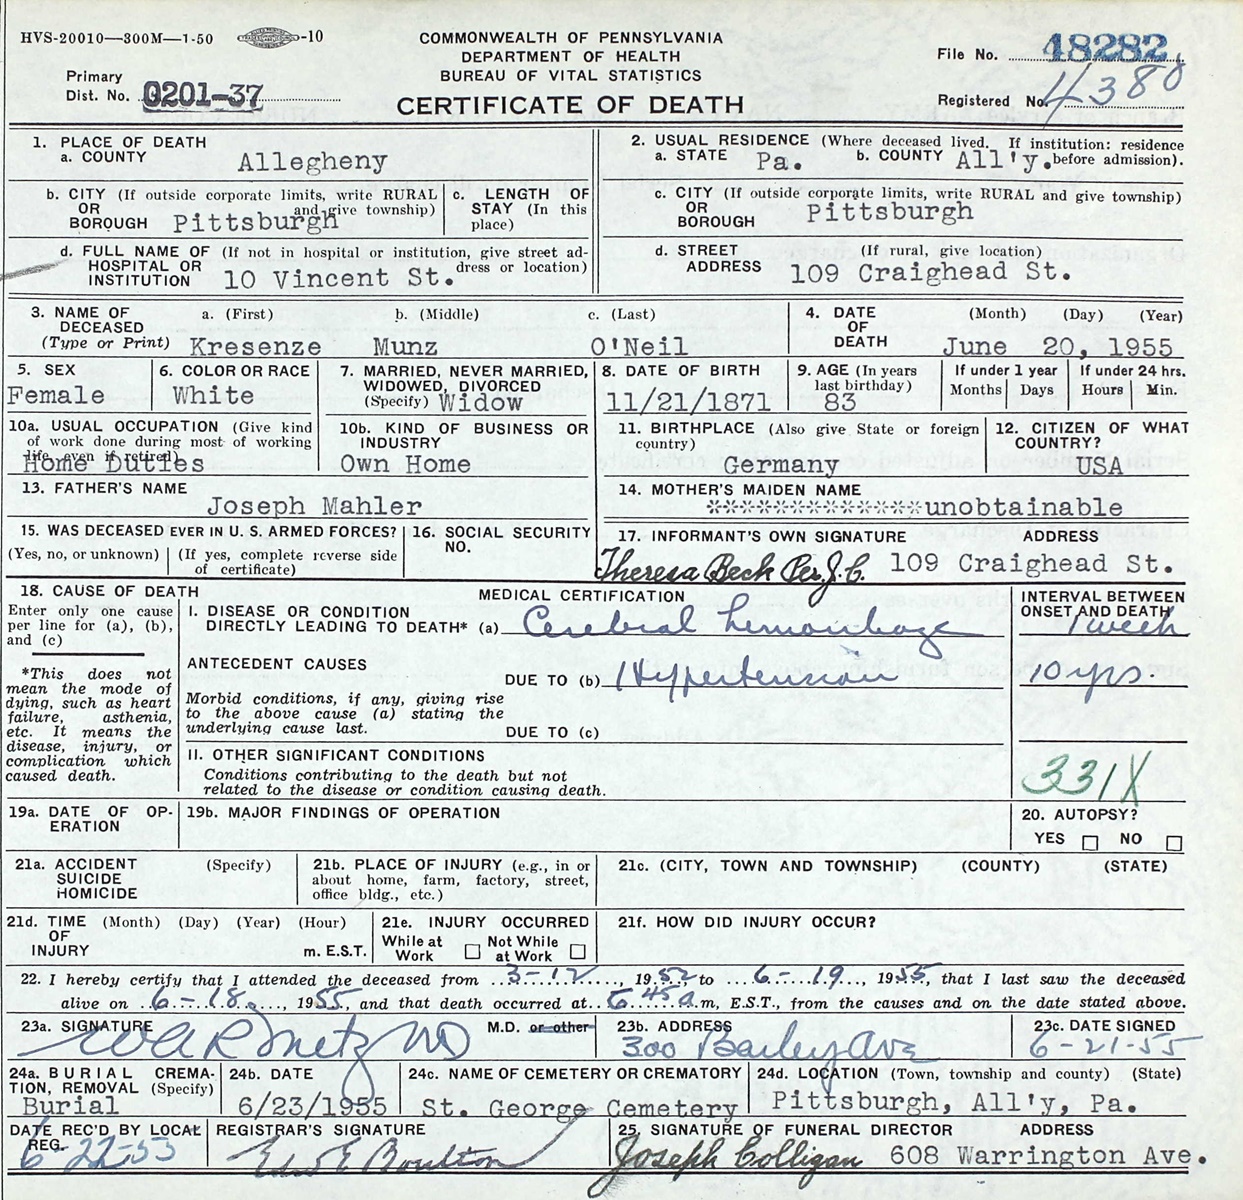 HVS-20010—300M—1-50 -10
COMMONWEALTH OF PENNSYLVANIA
DEPARTMENT OF HEALTH
BUREAU OF VITAL STATISTICS
CERTIFICATE OF DEATH
File No. 48282
Primary
Dist. No. 0201-37
Registered No. 4380
1. PLACE OF DEATH
a. COUNTY Allegheny
2. USUAL RESIDENCE (Where deceased lived. If institution: residence
a. STATE Pa. b. COUNTY All'y. before admission).
b. CITY (If outside corporate limits, write RURAL
OR and give township)
BOROUGH Pittsburgh
c. LENGTH OF
STAY (In this
place)
c. CITY (If outside corporate limits, write RURAL and give township)
OR
BOROUGH Pittsburgh
d. FULL NAME OF (If not in hospital or institution, give street ad-
HOSPITAL OR dress or location)
INSTITUTION 10 Vincent St.
d. STREET (If rural, give location)
ADDRESS 109 Craighead St.
3. NAME OF a. (First) b. (Middle) c. (Last)
DECEASED
(Type or Print) Kresenze Munz O'Neil
4. DATE (Month) (Day) (Year)
OF
DEATH June 20, 1955
5. SEX
Female
6. COLOR OR RACE
White
7. MARRIED, NEVER MARRIED,
WIDOWED, DIVORCED
(Specify) Widow
8. DATE OF BIRTH
11/21/1871
9. AGE (In years
last birthday)
83
If under 1 year
Months Days
If under 24 hrs.
Hours Min.
10a. USUAL OCCUPATION (Give kind
of work done during most of working
life, even if retired)
Home Duties
10b. KIND OF BUSINESS OR
INDUSTRY
Own Home
11. BIRTHPLACE (Also give State or foreign
country)
Germany
12. CITIZEN OF WHAT
COUNTRY?
USA
13. FATHER'S NAME
Joseph Mahler
14. MOTHER'S MAIDEN NAME
unobtainable
15. WAS DECEASED EVER IN U. S. ARMED FORCES?
(Yes, no, or unknown) (If yes, complete reverse side
of certificate)
16. SOCIAL SECURITY
NO.
17. INFORMANT'S OWN SIGNATURE ADDRESS
Theresa Beck Per J.C. 109 Craighead St.
18. CAUSE OF DEATH
Enter only one cause
per line for (a), (b),
and (c)
*This does not
mean the mode of
dying, such as heart
failure, asthenia,
etc. It means the
disease, injury, or
complication which
caused death.
MEDICAL CERTIFICATION
I. DISEASE OR CONDITION
DIRECTLY LEADING TO DEATH* (a) Cerebral hemorrhage
INTERVAL BETWEEN
ONSET AND DEATH
1 week
ANTECEDENT CAUSES
DUE TO (b) Hypertension 10 yrs.
Morbid conditions, if any, giving rise
to the above cause (a) stating the
underlying cause last.
DUE TO (c)
II. OTHER SIGNIFICANT CONDITIONS
Conditions contributing to the death but not
related to the disease or condition causing death.
331X
19a. DATE OF OP-
ERATION
19b. MAJOR FINDINGS OF OPERATION
20. AUTOPSY?
YES NO
21a. ACCIDENT (Specify)
SUICIDE
HOMICIDE
21b. PLACE OF INJURY (e.g., in or
about home, farm, factory, street,
office bldg., etc.)
21c. (CITY, TOWN AND TOWNSHIP) (COUNTY) (STATE)
21d. TIME (Month) (Day) (Year) (Hour)
OF
INJURY m. E.S.T.
21e. INJURY OCCURRED
While at Work Not While at Work
21f. HOW DID INJURY OCCUR?
22. I hereby certify that I attended the deceased from 3-12, 1952, to 6-19, 1955, that I last saw the deceased
alive on 6-18, 1955, and that death occurred at 6:45 a.m, E.S.T., from the causes and on the date stated above.
23a. SIGNATURE M.D. or other
23b. ADDRESS
300 Bailey Ave
23c. DATE SIGNED
6-21-55
24a. BURIAL CREMA-
TION, REMOVAL (Specify)
Burial
24b. DATE
6/23/1955
24c. NAME OF CEMETERY OR CREMATORY
St. George Cemetery
24d. LOCATION (Town, township and county) (State)
Pittsburgh, All'y, Pa.
DATE REC'D BY LOCAL
REG.
6-22-55
REGISTRAR'S SIGNATURE
Boulton
25. SIGNATURE OF FUNERAL DIRECTOR ADDRESS
Joseph Colligan 608 Warrington Ave.